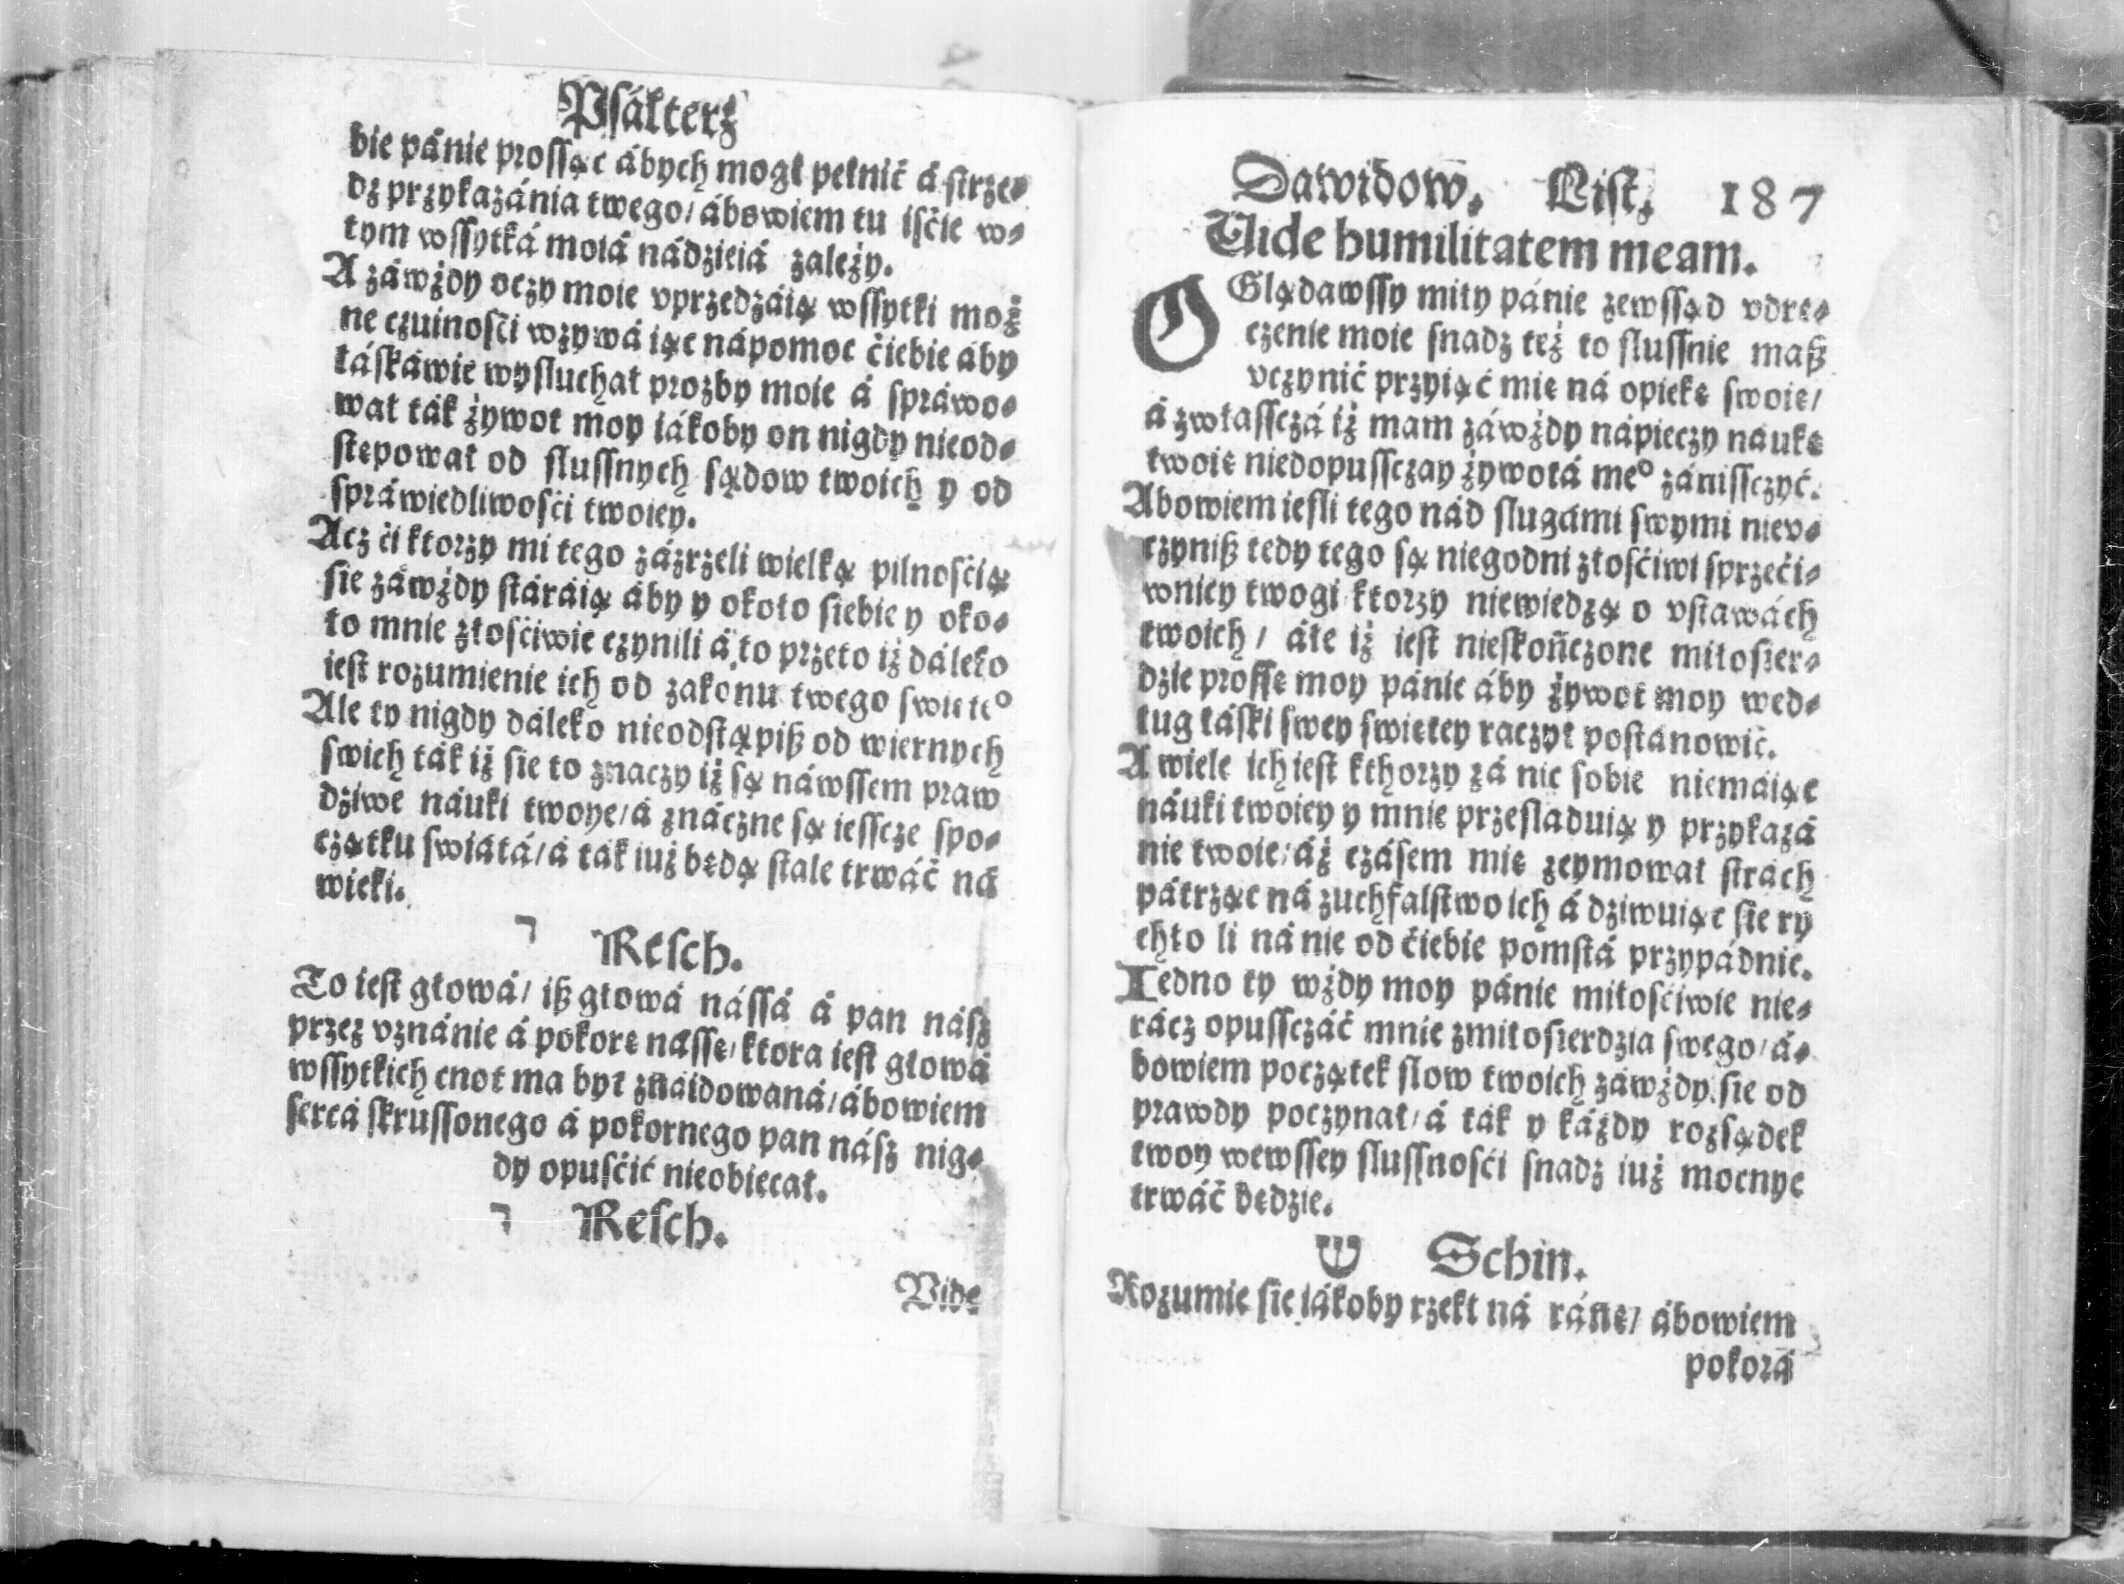 Psałterz
bie pánie prossąc ábych mogł pełnić á strze⸗
dz przykazánia twego/ ábowiem tu iśćie w⸗
tym wssytká moiá nádzieiá zależy.
A záwżdy oczy moie vprzedzáią wssytki moż
ne czuinośći wzywáiąc nápomoc ćiebie áby
łáskáwie wysluchał prozby moie á spráwo⸗
wał ták żywot moy iákoby on nigdy nieod⸗
stępował od slussnych sądow twoich y od
spráwiedliwośći twoiey.
Acz ći ktorzy mi tego zázrzeli wielką pilnośćią
sie záwżdy stáráią áby y około siebie y oko⸗
ło mnie złośćiwie czynili á to przeto iż dáleko
iest rozumienie ich od zakonu twego swięte°
Ale ty nigdy dáleko nieodstąpiß od wiernych
swich ták iż sie to znaczy iż są náwssem praw
dziwe náuki twoye/ á znáczne są iessce spo⸗
czątku swiátá/ á ták iuż będą stale trwáć ná
wieki.
ר Resch.
To iest głowá/ iß głowá nássá á pan nász
przez vznánie á pokorę nássę/ ktora iest głowá
wssytkich cnot ma być znáidowaná/ ábowiem
sercá skrussonego á pokornego pan nász nig⸗
dy opuśćić nieobiecał.
ר Resch.
Vide
Dawidow. List. 187
Vide humilitatem meam.
OGlądawssy miły pánie zewssąd vdrę⸗
czenie moie snadz też to slussnie maß
vczynić przyiąć mię ná opiekę swoię/
á zwłassczá iż mam záwżdy nápieczy náukę
twoię niedopussczay żywotá me° zánissczyć.
Abowiem iesli tego nád slugámi swymi niev⸗
czyniß tedy tego są niegodni złośćiwi sprzeći⸗
wnicy twogi ktorzy niewiedzą o vstawách
twoich/ ále iż iest nieskończone miłosier⸗
dzie prossę moy pánie áby żywot moy wed⸗
ług łáski swey swiętey raczył postánowić.
A wiele ich iest kthorzy zá nic sobie niemáiąc
náuki twoiey y mnie przesladuią y przykazá
nie twoie/ áż czásem mię zeymował strách
pátrząc ná zuchfalstwo ich á dziwuiąc sie ry
chło li ná nie od ćiebie pomstá przypádnie.
Iedno ty wżdy moy pánie miłośćiwie nie⸗
rácz opussczáć mnie zmiłosierdzia swego/ á⸗
bowiem początek slow twoich záwżdy sie od
prawdy poczynał/ á ták y káżdy rozsądek
twoy wewssey slussnośći snadz iuż mocnye
trwáć będzie.
ש Schin.
Rozumie sie iákoby rzekł ná ránę/ ábowiem
pokorá